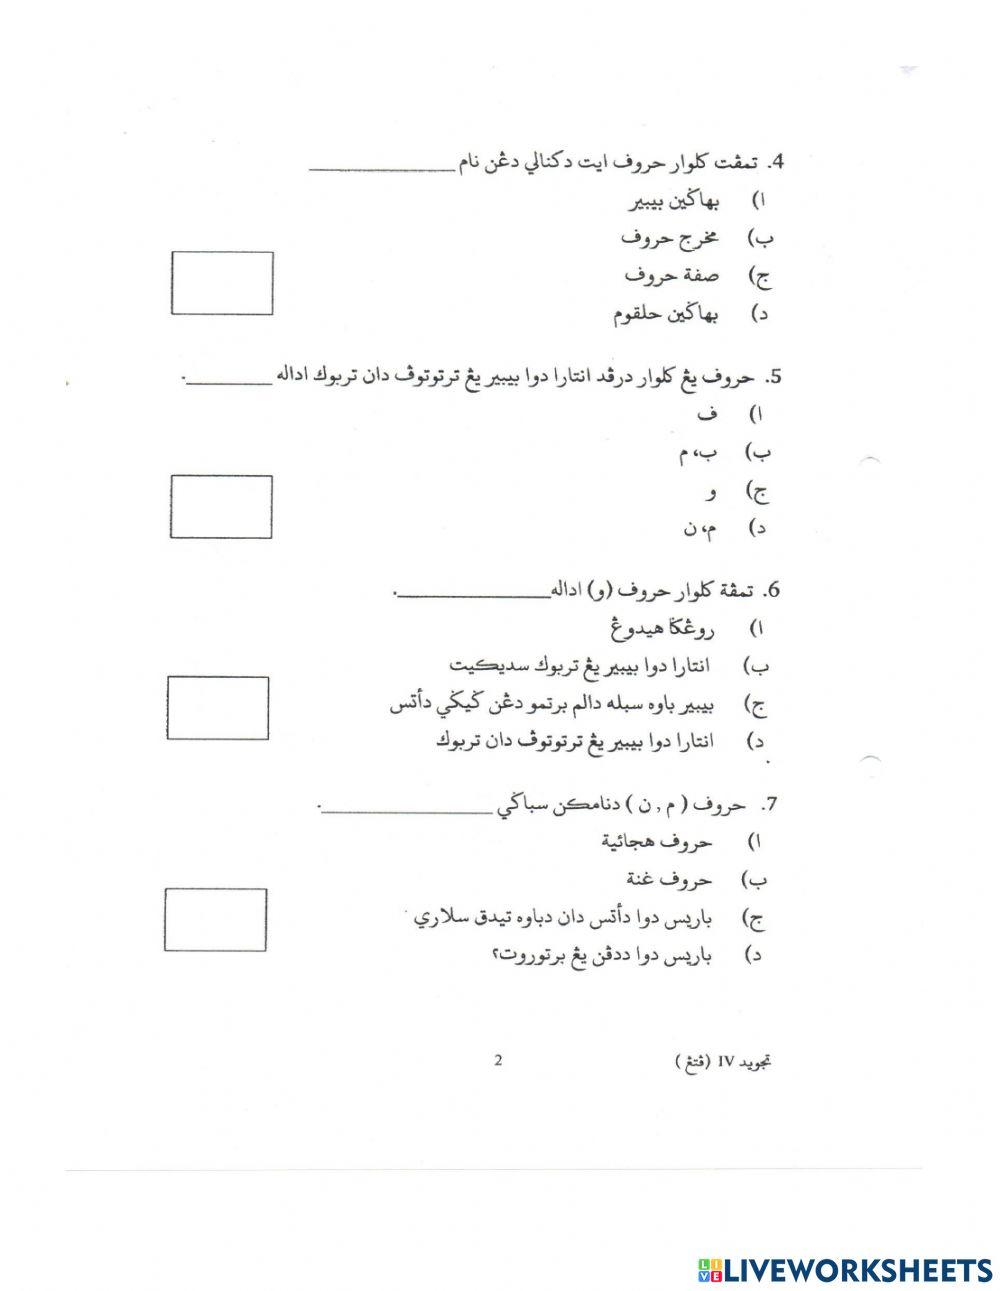 4. تمڤت كلوار حروف ايت دكنالي دڠن نام ____________
ا) بهاݢين بيبير
ب) مخرج حروف
ج) صفة حروف
د) بهاݢين حلقوم
5. حروف يڠ كلوار درڤد انتارا دوا بيبير يڠ ترتوتوڤ دان تربوك اداله ________.
ا) ف
ب) ب، م
ج) و
د) م، ن
6. تمڤة كلوار حروف (و) اداله______________.
ا) روڠݢا هيدوڠ
ب) انتارا دوا بيبير يڠ تربوك سديكيت
ج) بيبير باوه سبله دالم برتمو دڠن ݢيݢي دأتس
د) انتارا دوا بيبير يڠ ترتوتوڤ دان تربوك
7. حروف ( م , ن ) دنامكن سباݢي ________________.
ا) حروف هجائية
ب) حروف غنة
ج) باريس دوا دأتس دان دباوه تيدق سلاري
د) باريس دوا ددڤن يڠ برتوروت؟
تجويد IV (ڤتڠ ) 2
LIVEWORKSHEETS